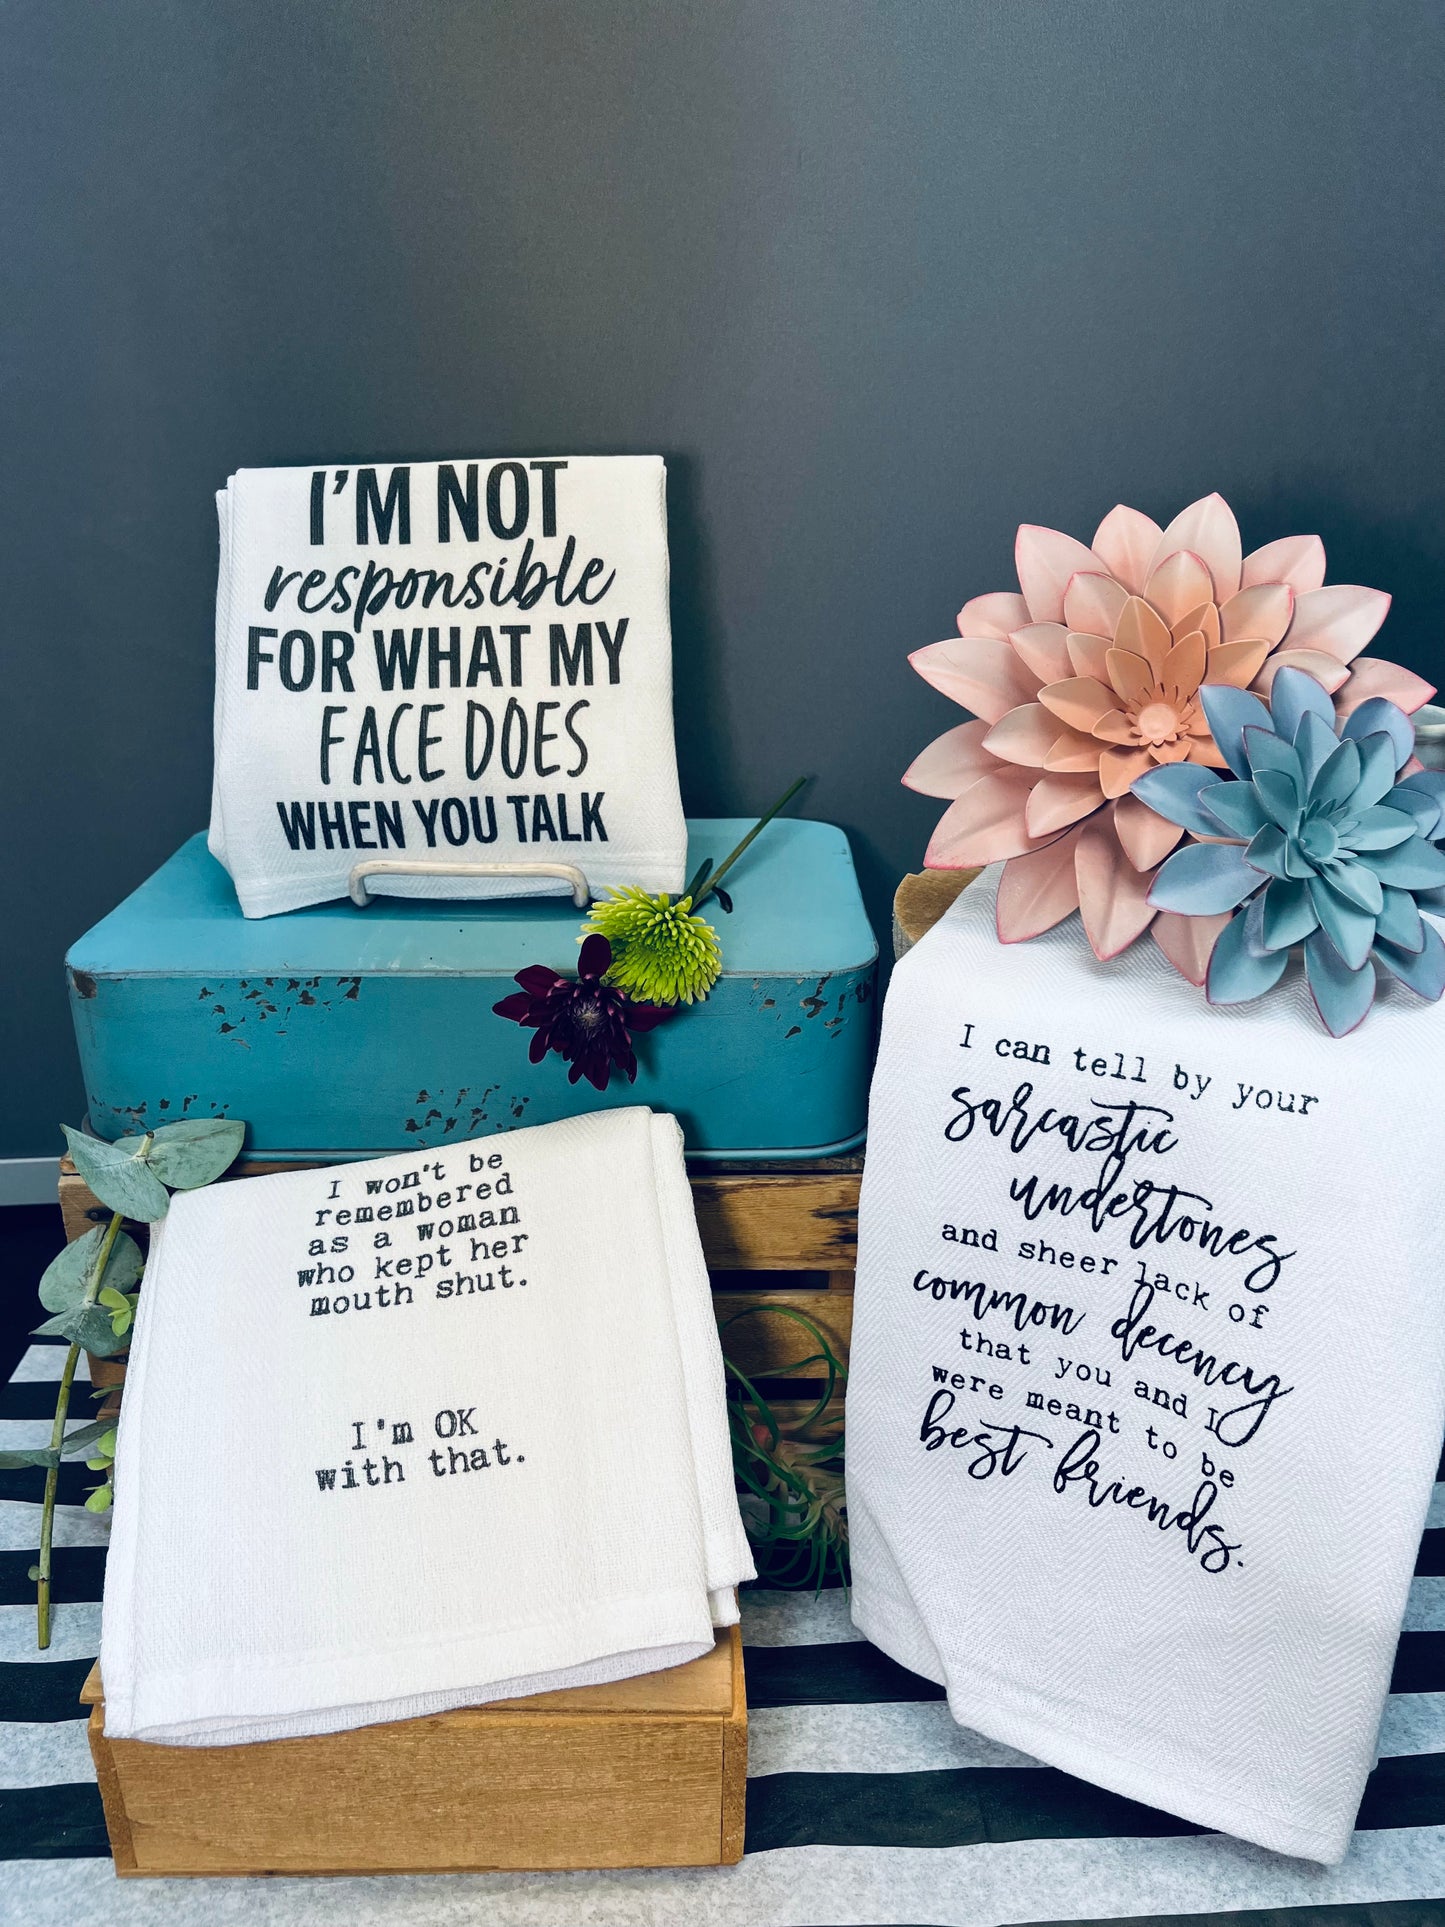 I'M NOT
responsible
FOR WHAT MY
FACE DOES
WHEN YOU TALK
I won't be
remembered
as a woman
who kept her
mouth shut.
I'm OK
with that.
I can tell by your
sarcastic
undertones
and sheer lack of
common decency
that you and I
were meant to be
best friends.